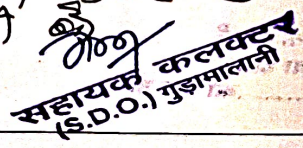 सहायक कलक्टर
(S.D.O.) गुड़ामालानी